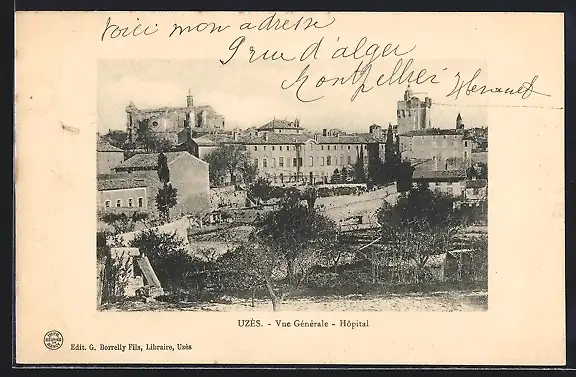 voici mon adresse
9 rue d'alger
Montpellier Herault
UZÈS. - Vue Générale - Hôpital
Edit. G. Borrelly Fils, Libraire, Uzès